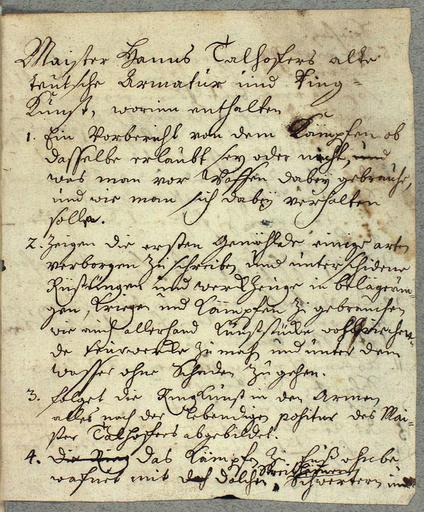 Maister Hanns Talhoffers alte
teutsche Armatur und Ring-
Kunst, worinn enthalten
1. Ein Vorbericht von dem Kämpfen ob
dasselbe erlaubt sey oder nicht, und
was man vor Waffen dabey gebrauche,
und wie man sich dabey verhalten
solle.
2. Zeigen die ersten Gemählde einige arten
verborgen zu schreiben und unterschidene
Rüstungen und werckzeuge in belageru-
gen, Kriegen und Kämpfen zu gebrauchen
wie auch allerhand Kunststücke
de feurwercke zu mach und unter dem
wasser ohne Schaden zu gehen.
3. folget die Ringkunst in den Armen
alles nach der lebendigen positur des Mai-
ster Talhoffers abgebildet.
4. das Kämpfen zu fuß ohnbe
wafnet mit Dolchen Streitkolben Schwertern und